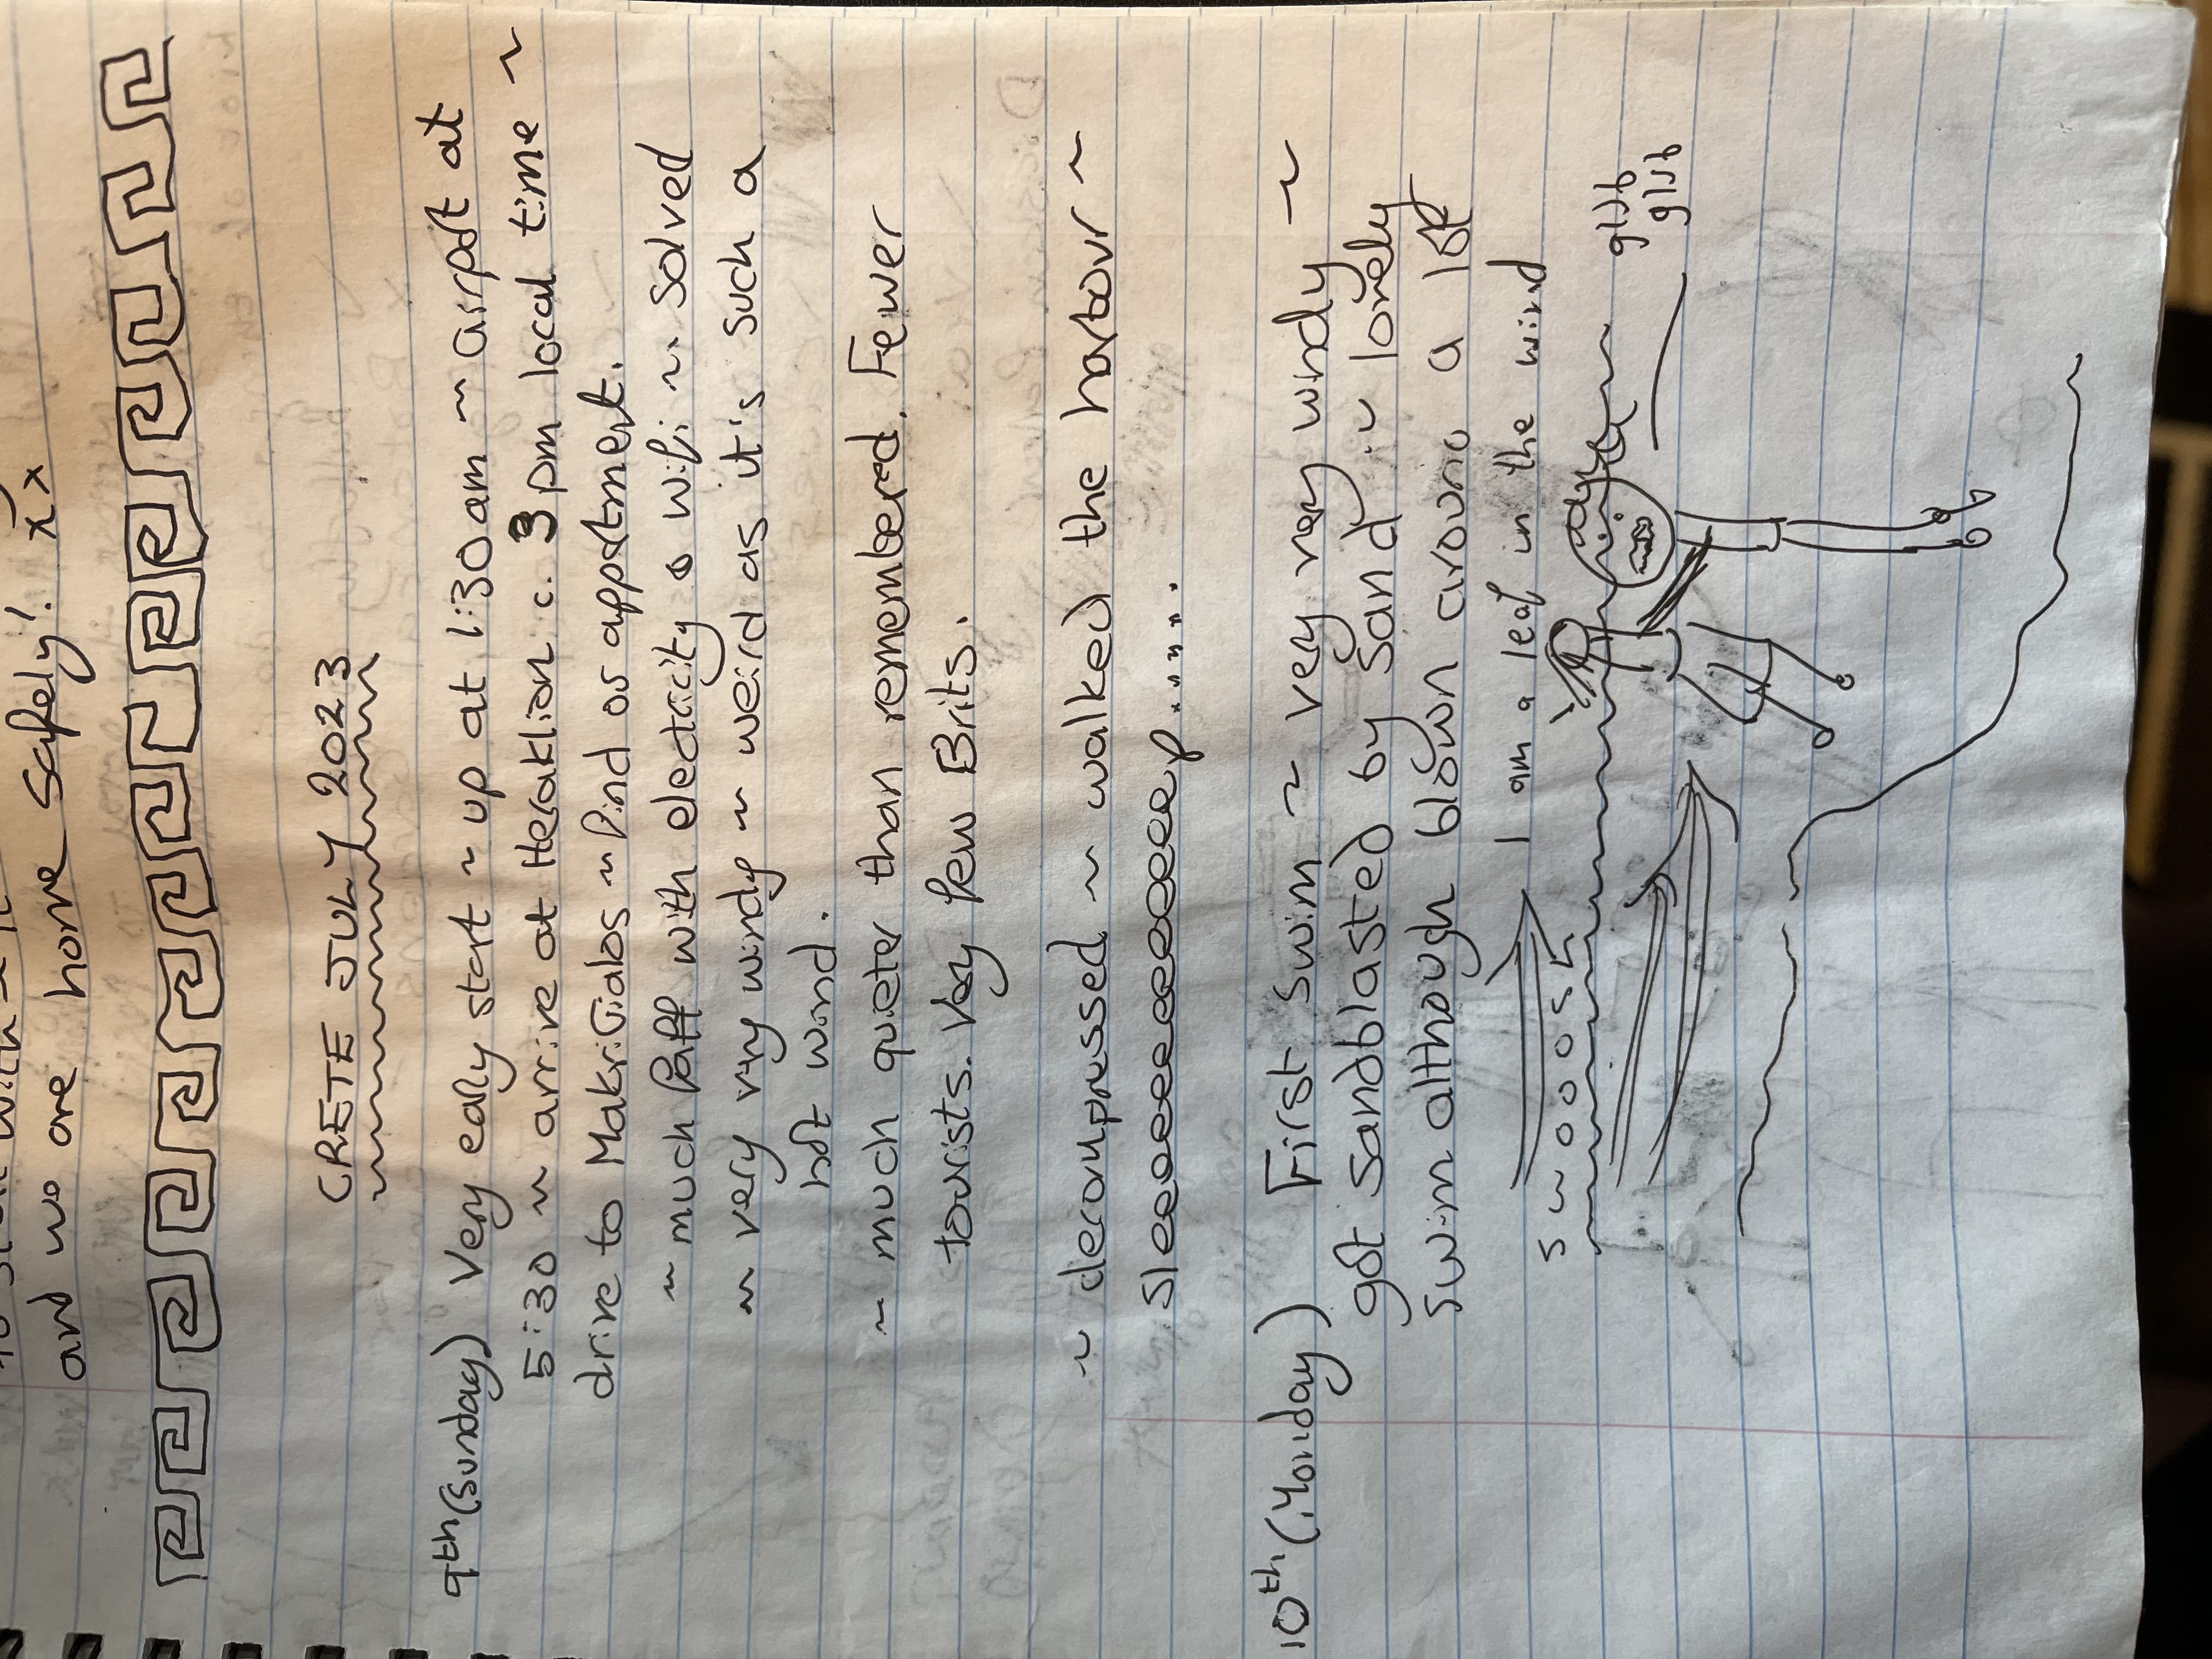 to start with ~ it
and we are home safely! xx
CRETE JULY 2023
9th (Sunday) Very early start ~ up at 1:30am ~ airport at
5:30 ~ arrive at Heraklion c. 3pm local time ~
drive to MakriGialos ~ find os appartment.
~ much faff with electricity & Wifi ~ solved
~ very very windy ~ weird as it's such a
hot wind.
~ much quieter than remembered. Fewer
tourists. Very few Brits.
~ decompressed ~ walked the harbour ~
sleeeeeeeeeeeeeep......
10th (Monday) First swim ~ very very windy ~
got sandblasted by sand ~ lovely
swim although blown around a lot
I am a leaf in the wind
swooosh
glub
glub